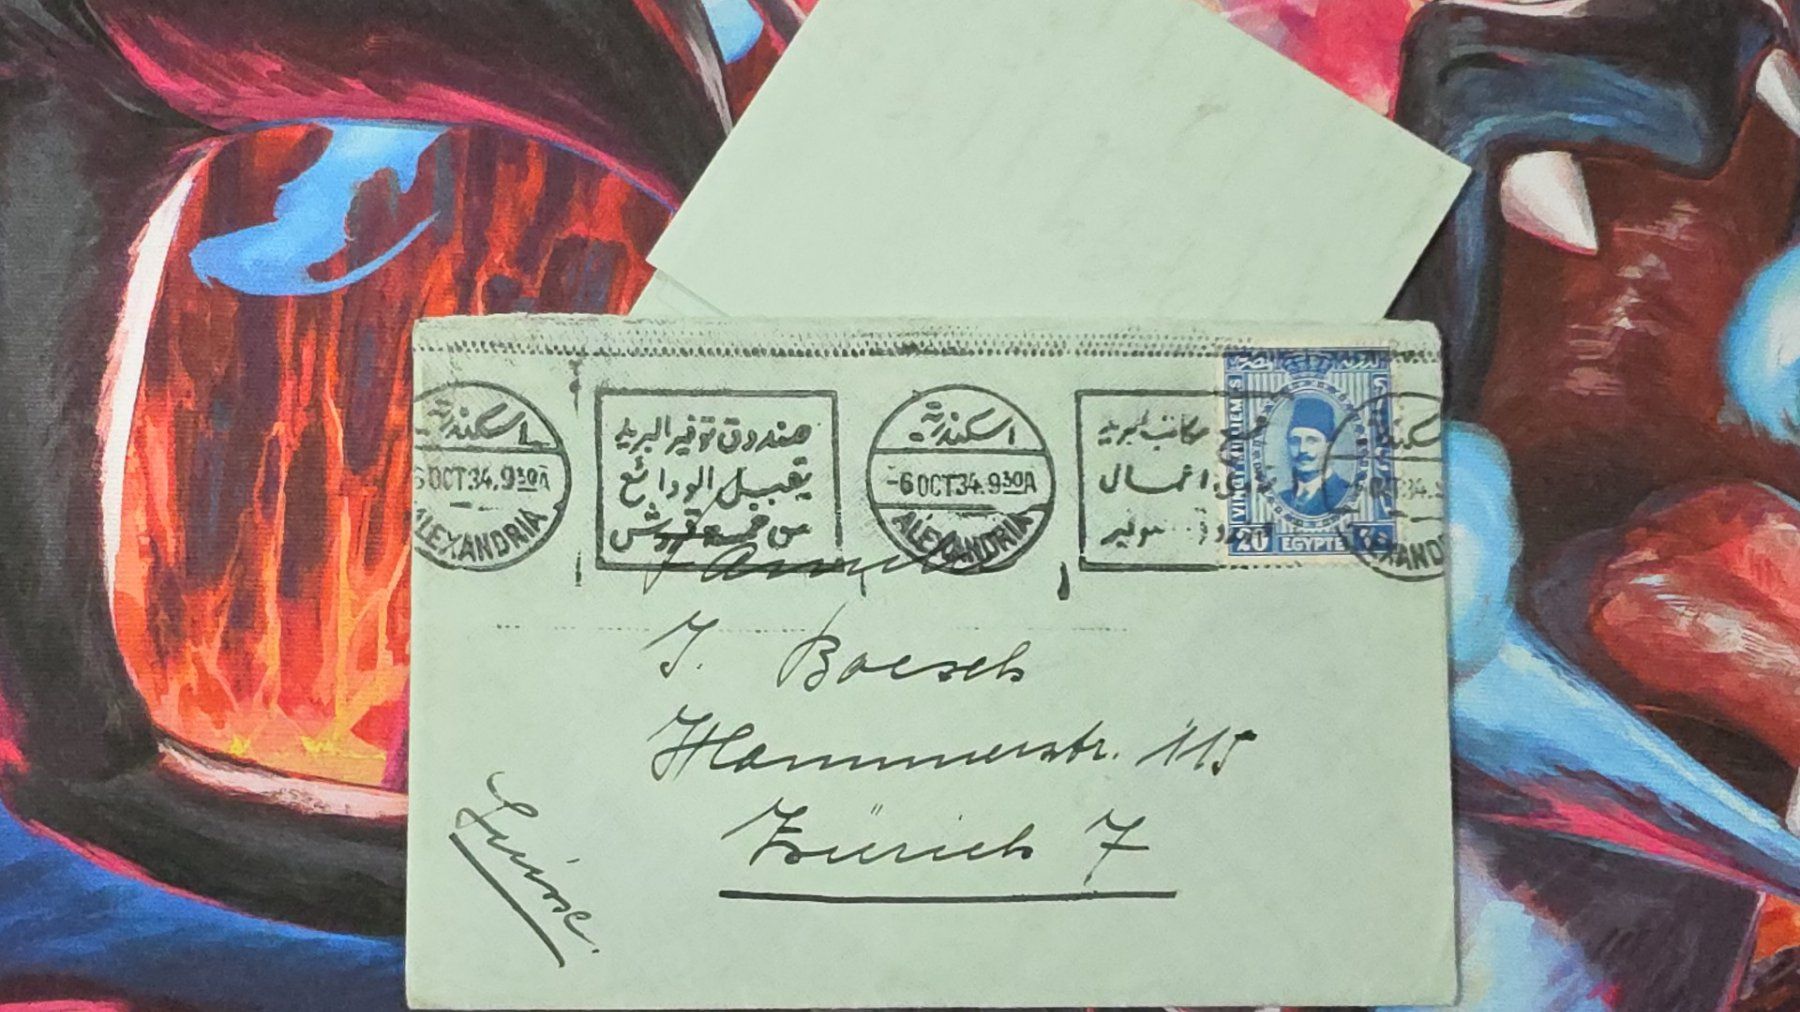 اسكندرية
6 OCT 34. 9 30 A
ALEXANDRIA
صندوق توفير البريد
يقبل الودائع
من خمسة قروش
اسكندرية
-6 OCT 34. 9 30 A
ALEXANDRIA
مكاتب البريد
اعمال
توفير
VINGT MILLIEMES
20
EGYPTE
Famille
J. Boesch
Hammerstr. 115
Zürich 7
Suisse.